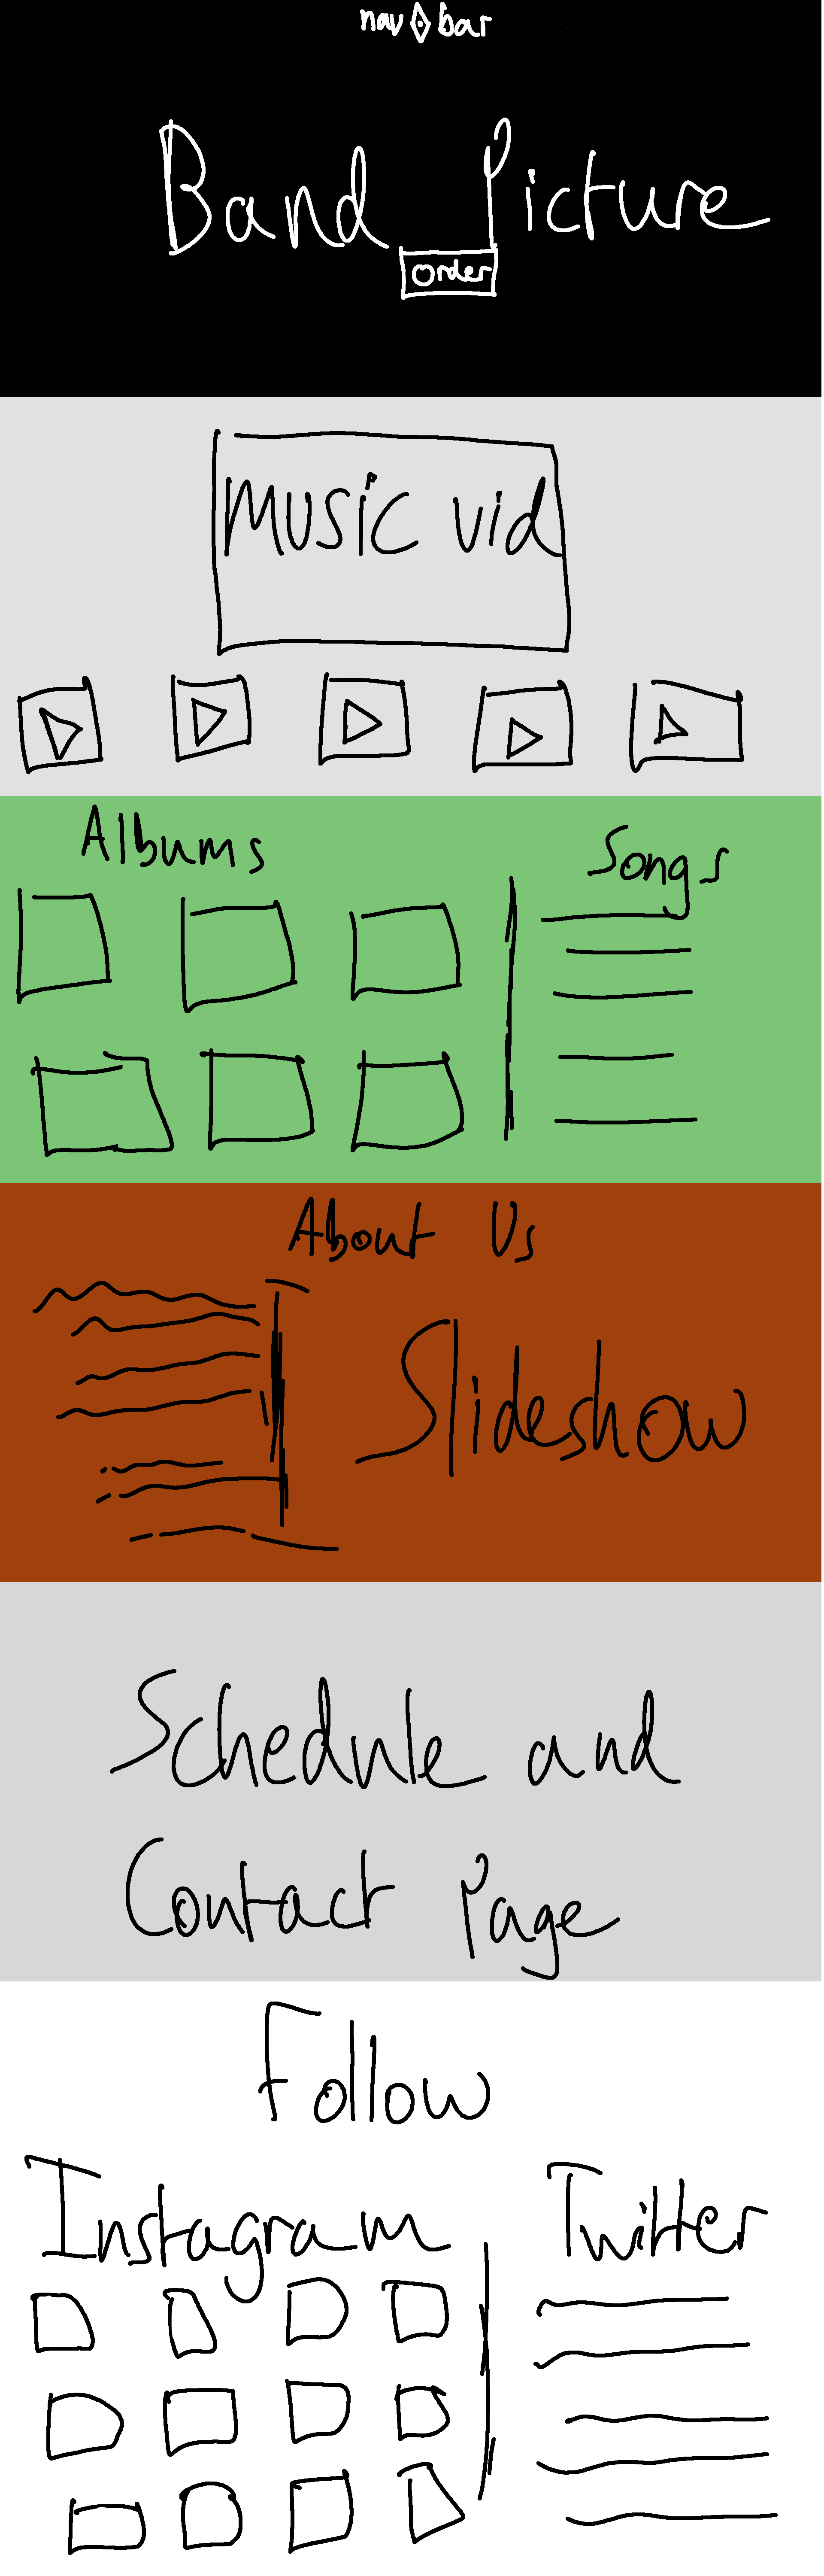 nav bar
Band Picture
Order
Music vid
Albums
Songs
About Us
Slideshow
Schedule and
Contact Page
Follow
Instagram
Twitter